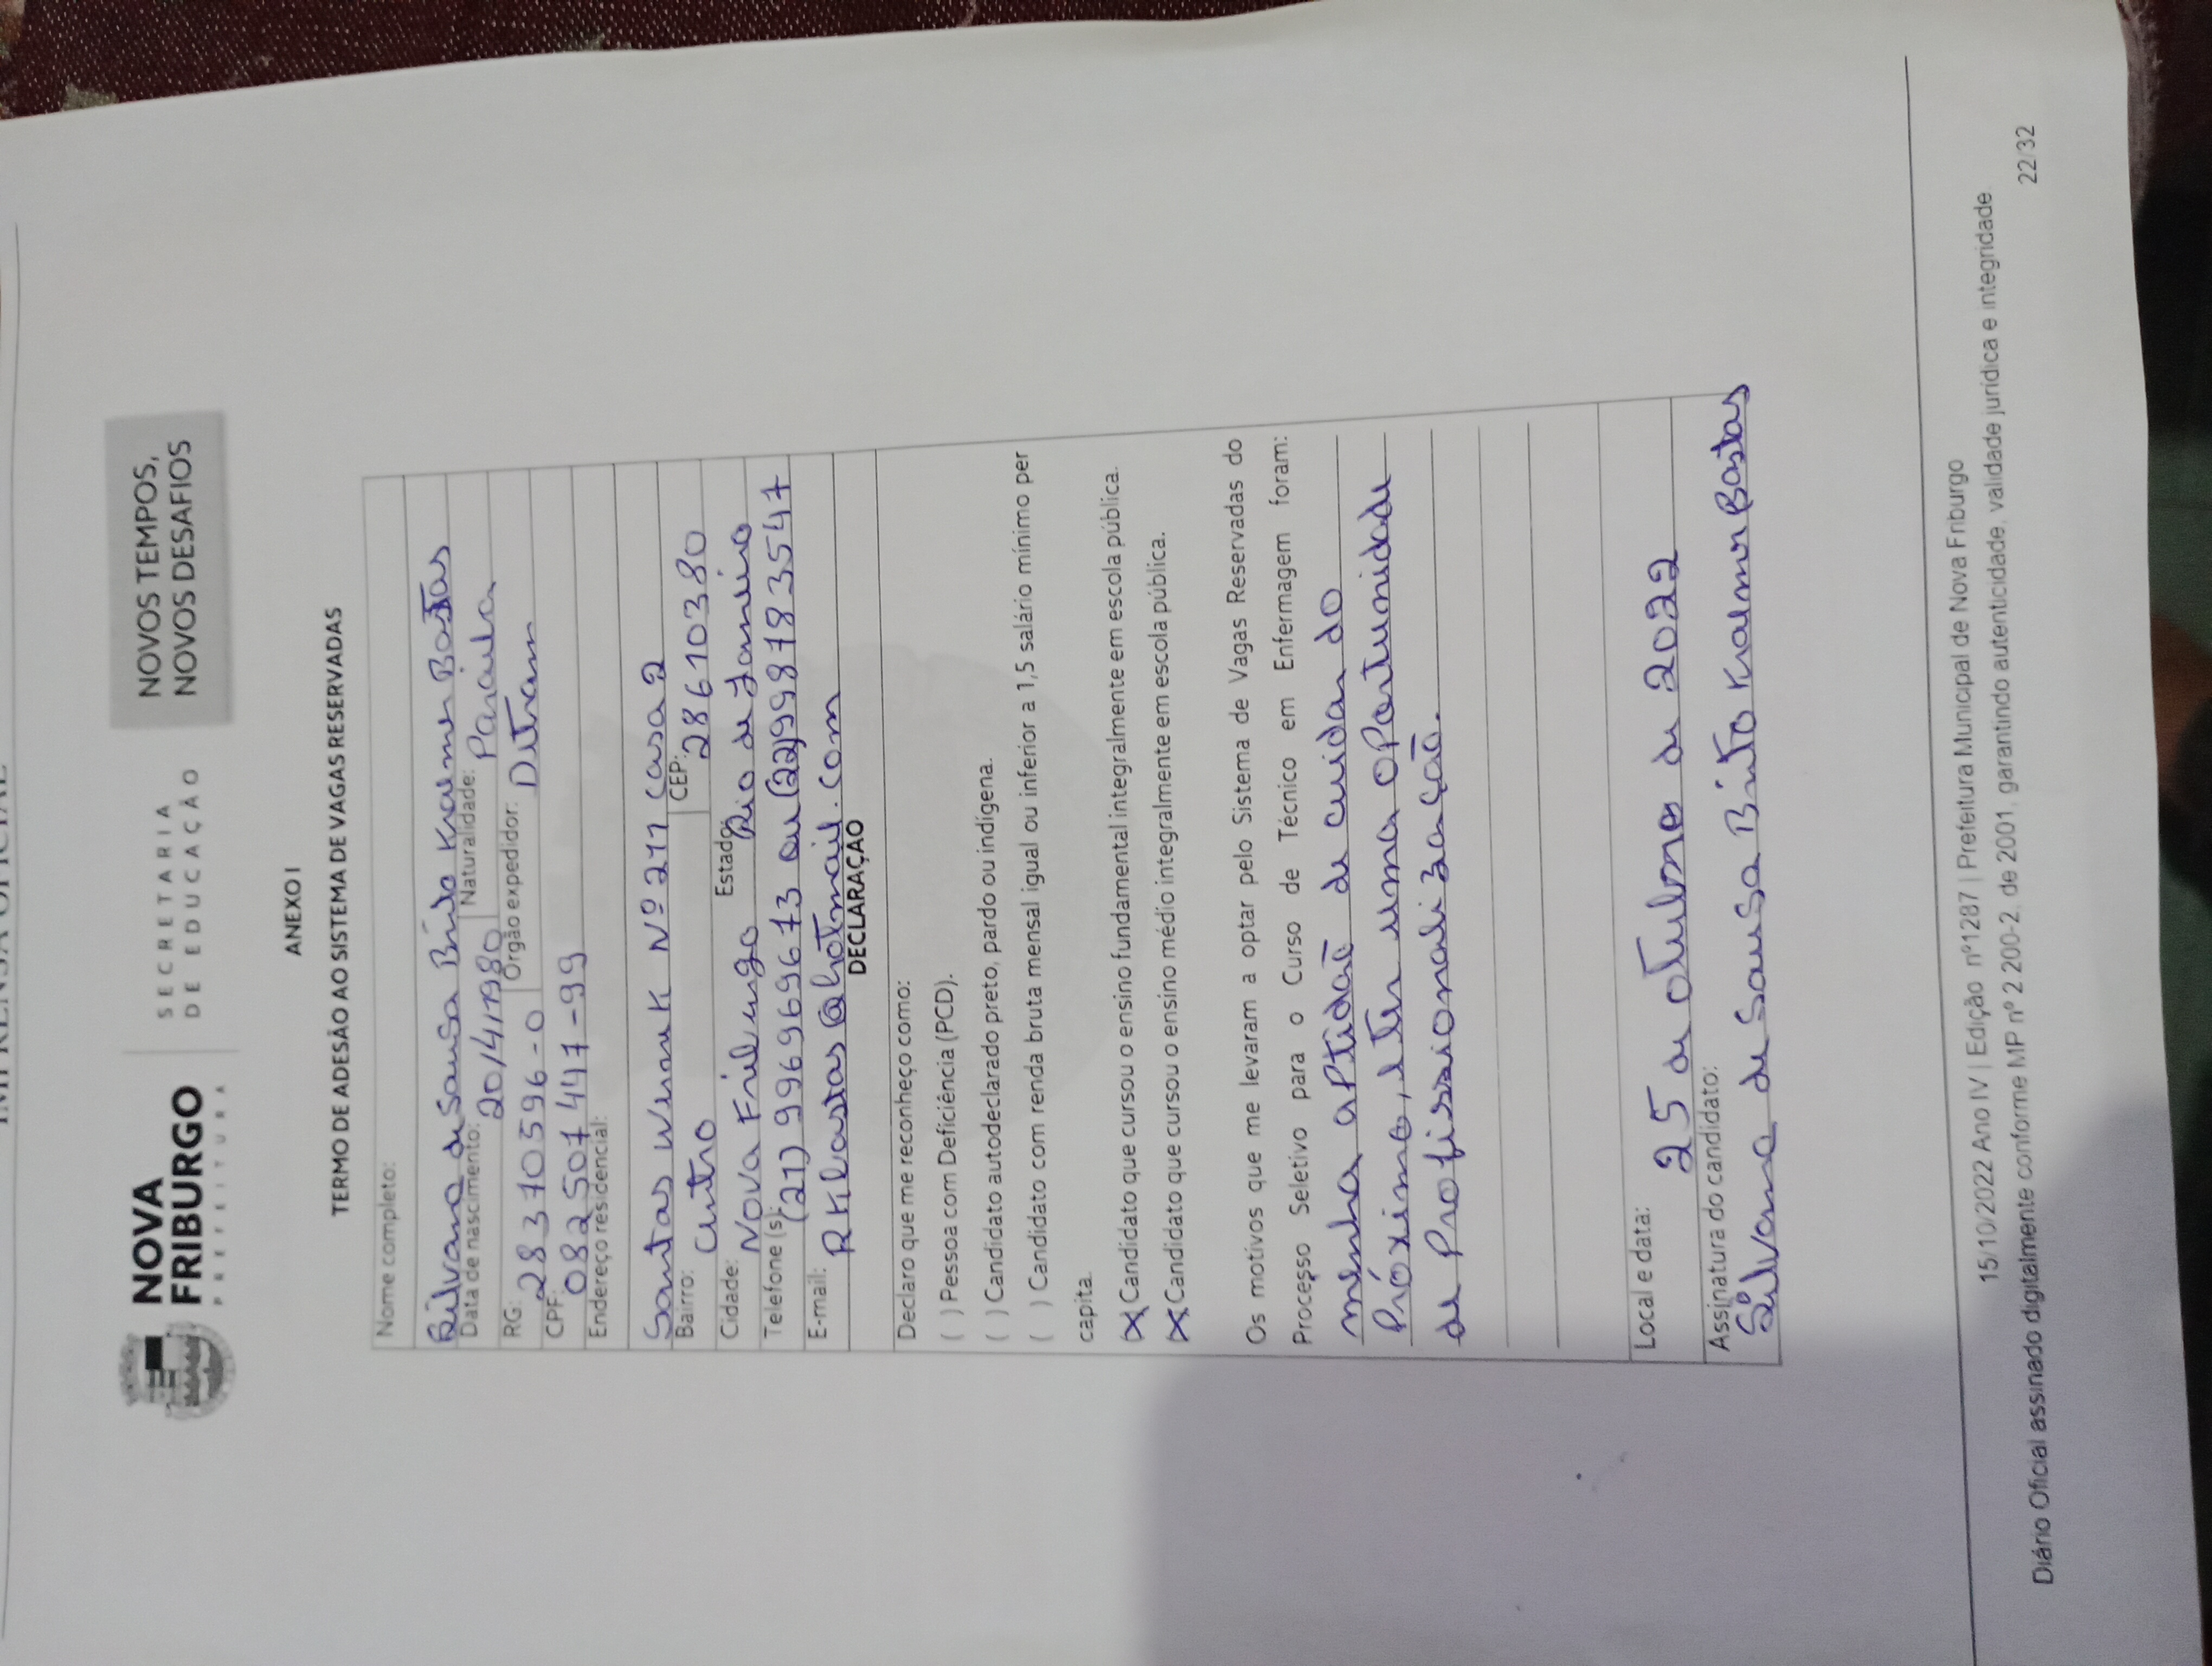 IMPRENSA OFICIAL
NOVA
FRIBURGO
PREFEITURA
SECRETARIA
DE EDUCAÇÃO
NOVOS TEMPOS,
NOVOS DESAFIOS
ANEXO I
TERMO DE ADESÃO AO SISTEMA DE VAGAS RESERVADAS
Nome completo:
Silvana de Sousa Brito Kraemer Bastas
Data de nascimento: 20/4/1980 Naturalidade: Paraiba
RG: 28370596-0 Órgão expedidor: Detram
CPF: 082507447-99
Endereço residencial:
Santas Werneck Nº 211 casa 2
Bairro: centro CEP: 28610380
Cidade: Nova Friburgo Estado: Rio de Janeiro
Telefone (s): (21) 996969673 ou (22)998783547
E-mail: RKbastas@hotmail.com
DECLARAÇÃO
Declaro que me reconheço como:
( ) Pessoa com Deficiência (PCD).
( ) Candidato autodeclarado preto, pardo ou indígena.
( ) Candidato com renda bruta mensal igual ou inferior a 1,5 salário mínimo per
capita.
(X) Candidato que cursou o ensino fundamental integralmente em escola pública.
(X) Candidato que cursou o ensino médio integralmente em escola pública.
Os motivos que me levaram a optar pelo Sistema de Vagas Reservadas do
Processo Seletivo para o Curso de Técnico em Enfermagem foram:
minha aptidão de cuidar do
Próximo, e ter uma oPortunidade
de Profissionalização.
Local e data: 25 de otubro de 2022
Assinatura do candidato:
Silvana de Sousa Brito Kraemer Bastas
15/10/2022 Ano IV | Edição nº1287 | Prefeitura Municipal de Nova Friburgo
Diário Oficial assinado digitalmente conforme MP nº 2.200-2, de 2001, garantindo autenticidade, validade jurídica e integridade
22/32